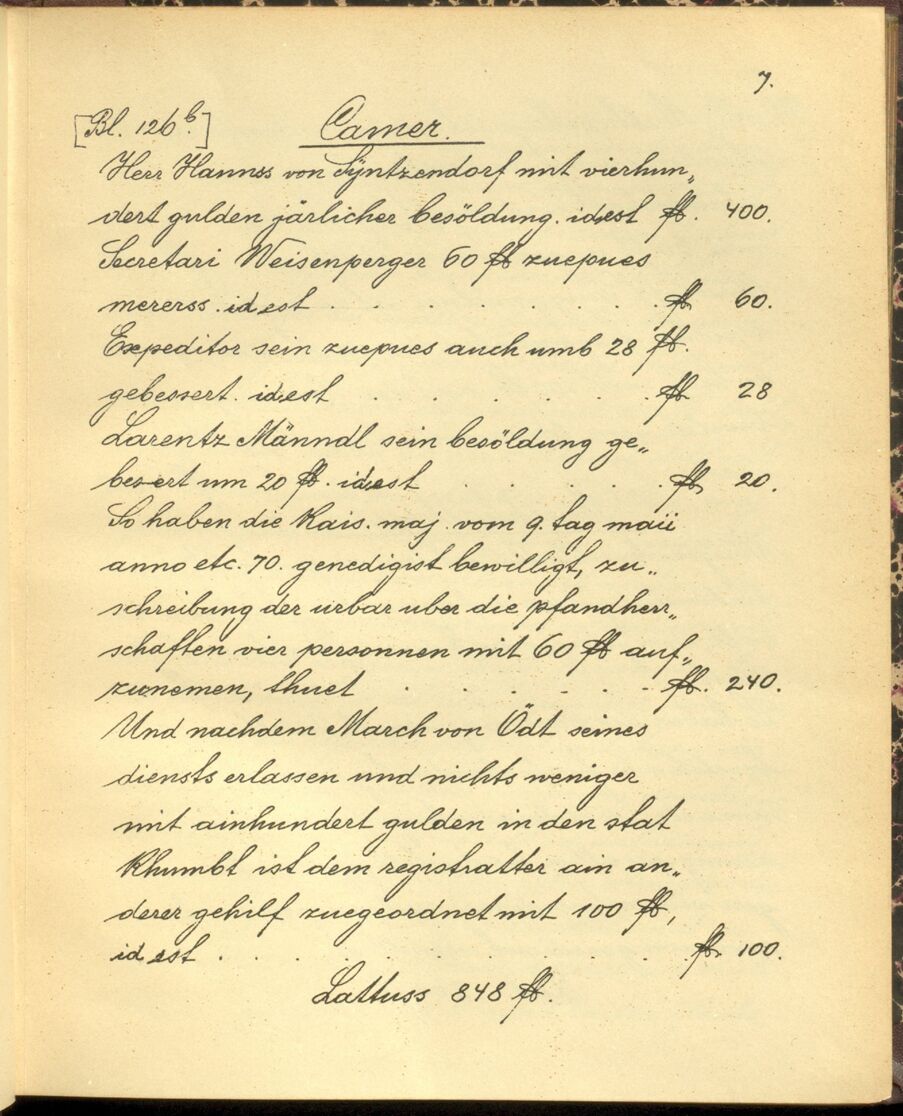 7.
[Bl. 126 b.] Camer.
Herr Hannss von Syntzendorf mit vierhun„
dert gulden järlicher besöldung. id est fl. 400.
Secretari Weisenperger 60 fl zuepues
mererss. id est . . . . . . . . fl. 60.
Expeditor sein zuepues auch umb 28 fl.
gebessert. id est . . . . . . fl. 28
Larentz Männdl sein besöldung ge„
bessert um 20 fl. id est . . . . . fl. 20.
So haben die Kais. maj. vom 9. tag maii
anno etc. 70. genedigist bewilligt, zu„
schreibung der urbar uber die pfandherr„
schaften vier personnen mit 60 fl auf„
zunemen, thuet . . . . . . fl. 240.
Und nachdem March von Ödt seines
diensts erlassen und nichts weniger
mit ainhundert gulden in den stat
Khumbt ist dem registratter ain an„
derer gehilf zuegeordnet mit 100 fl,
id est . . . . . . . . . fl. 100.
Lattuss 848 fl.